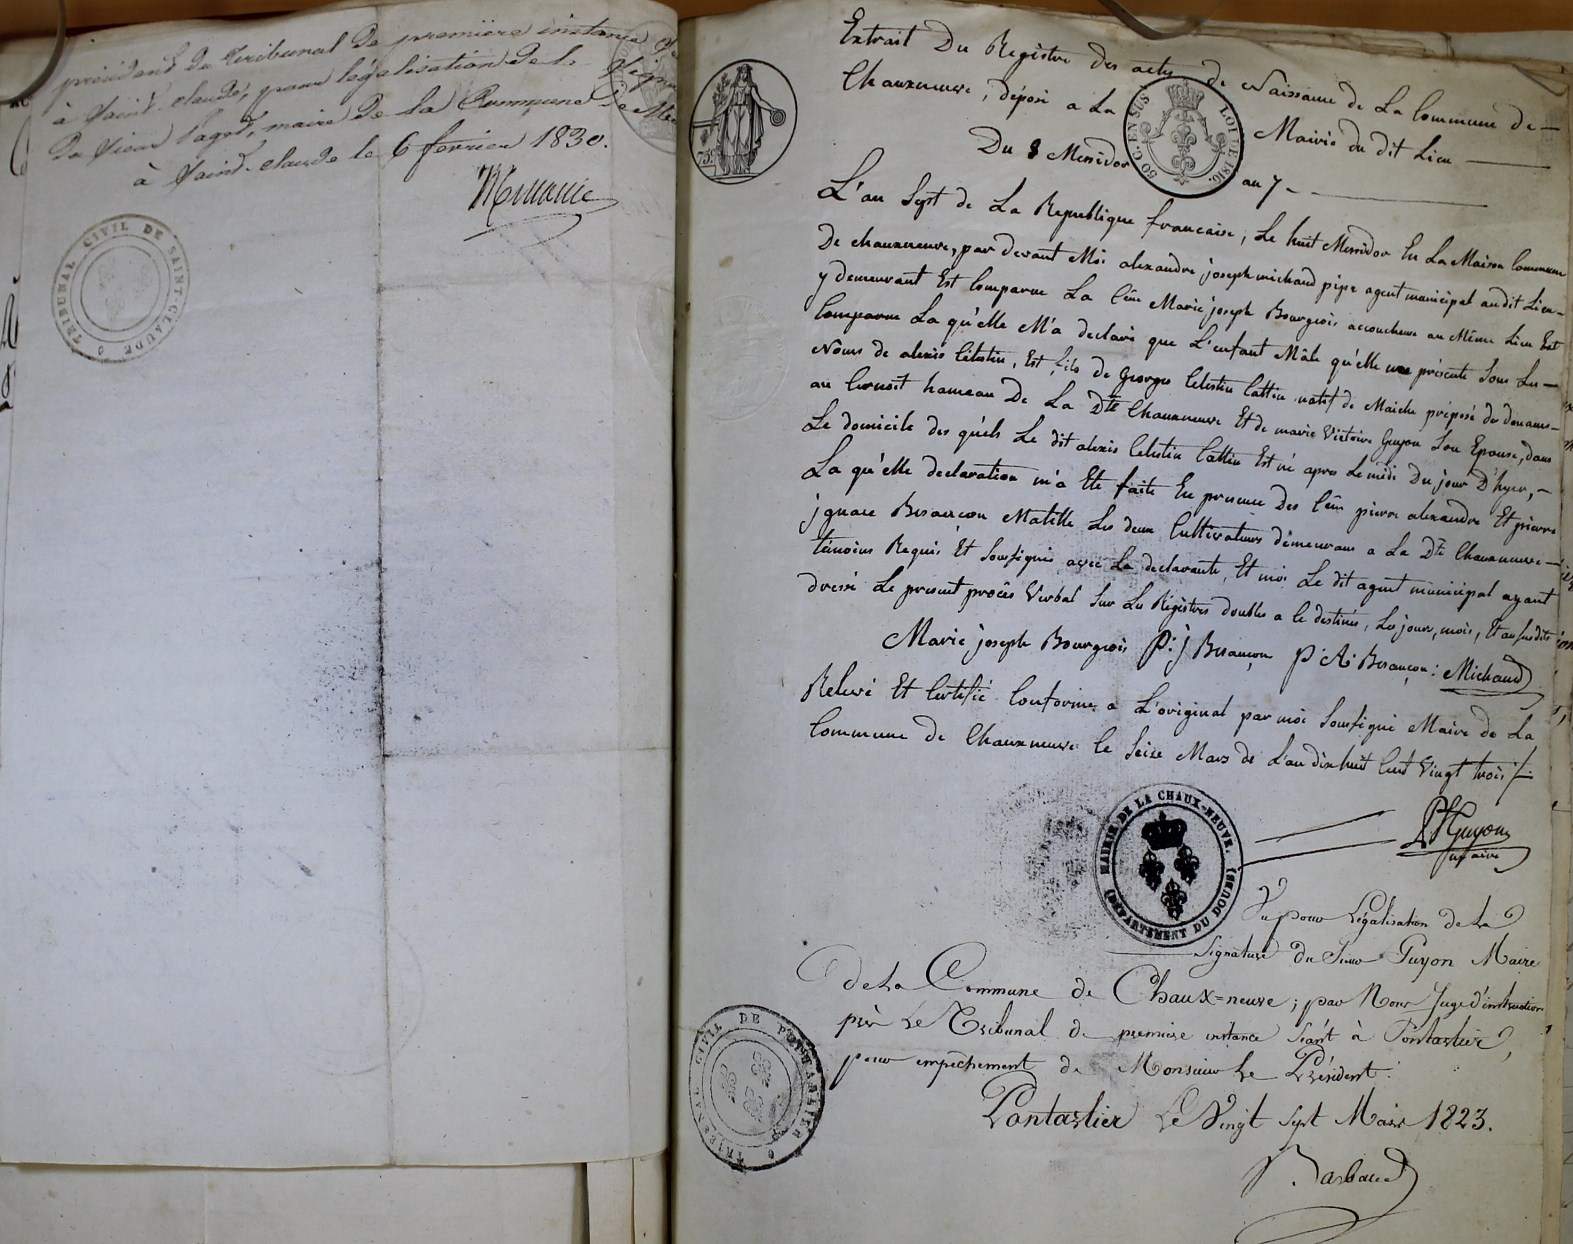 président du Tribunal de première instance
à Saint-claude, pour légalisation de la
du Sieur maire de la Commune de
à Saint-claude le 6 février 1830.
TRIBUNAL CIVIL DE SAINT-CLAUDE
Extrait Du Registre des actes de Naissance de La Commune de
Chauxneuve, déposé a La Mairie du dit Lieu
Du 8 Messidor an 7
75c
50 C. EN SUS
LOI DE 1816.
L'an Sept de La Republique francaise, Le huit Messidor En La Maison Commune
De chauxneuve, par devant Moi alexandre joseph michaud pipe agent municipal audit Lieu
y demeurant Est Comparue La Cêne Marie joseph Bourgeois accoucheuse au Même Lieu Est
Comparue La qu'elle M'a declaré que L'enfant Mâle qu'elle me présente Sous Le
Noms de alexis Célestin, Est fils de Georges Celestin Cattin natif de Maiche préposé des douanes
au Cernoit hameau De La Dte Chauxneuve Et de marie Victoire Guyon Son Epouse, dans
Le domicile des quéls Le dit alexis Celestin Cattin Est né apres Le midi Du jour D'hyer,
La qu'elle declaration m'a Eté faite En presence Des Cêns pierre alexandre Et pierre
jgnace Besancon Matille Les deux Cultivateurs démeurans a La Dte Chauxneuve
témoins Requis Et Soussignés avec La declarante, Et moi Le dit agent municipal ayant
dressé Le present procês Verbal Sur Les Régistres doubles a le destinés, Les jour, mois, Et an susdits
Marie joseph Bourgeois P: j Besançon P: A: Besançon: Michaud
Relevé Et Certifié Conforme a L'original par moi Soussigné Maire de La
Commune de Chauxneuve le Seize Mars de L'an dix huit Cent Vingt trois
Guyon
maire
MAIRIE DE LA CHAUX-NEUVE.
(DÉPARTEMENT DU DOUBS)
Vu pour Légalisation de La
Signature du Sieur Guyon Maire
De La Commune de Chaux=neuve; par Nous Juge d'instruction
près Le Tribunal de premiere instance séant à Pontarlier,
pour empêchement de Monsieur Le Président.
Pontarlier Le Vingt Sept Mars 1823.
TRIBUNAL CIVIL DE PONTARLIER